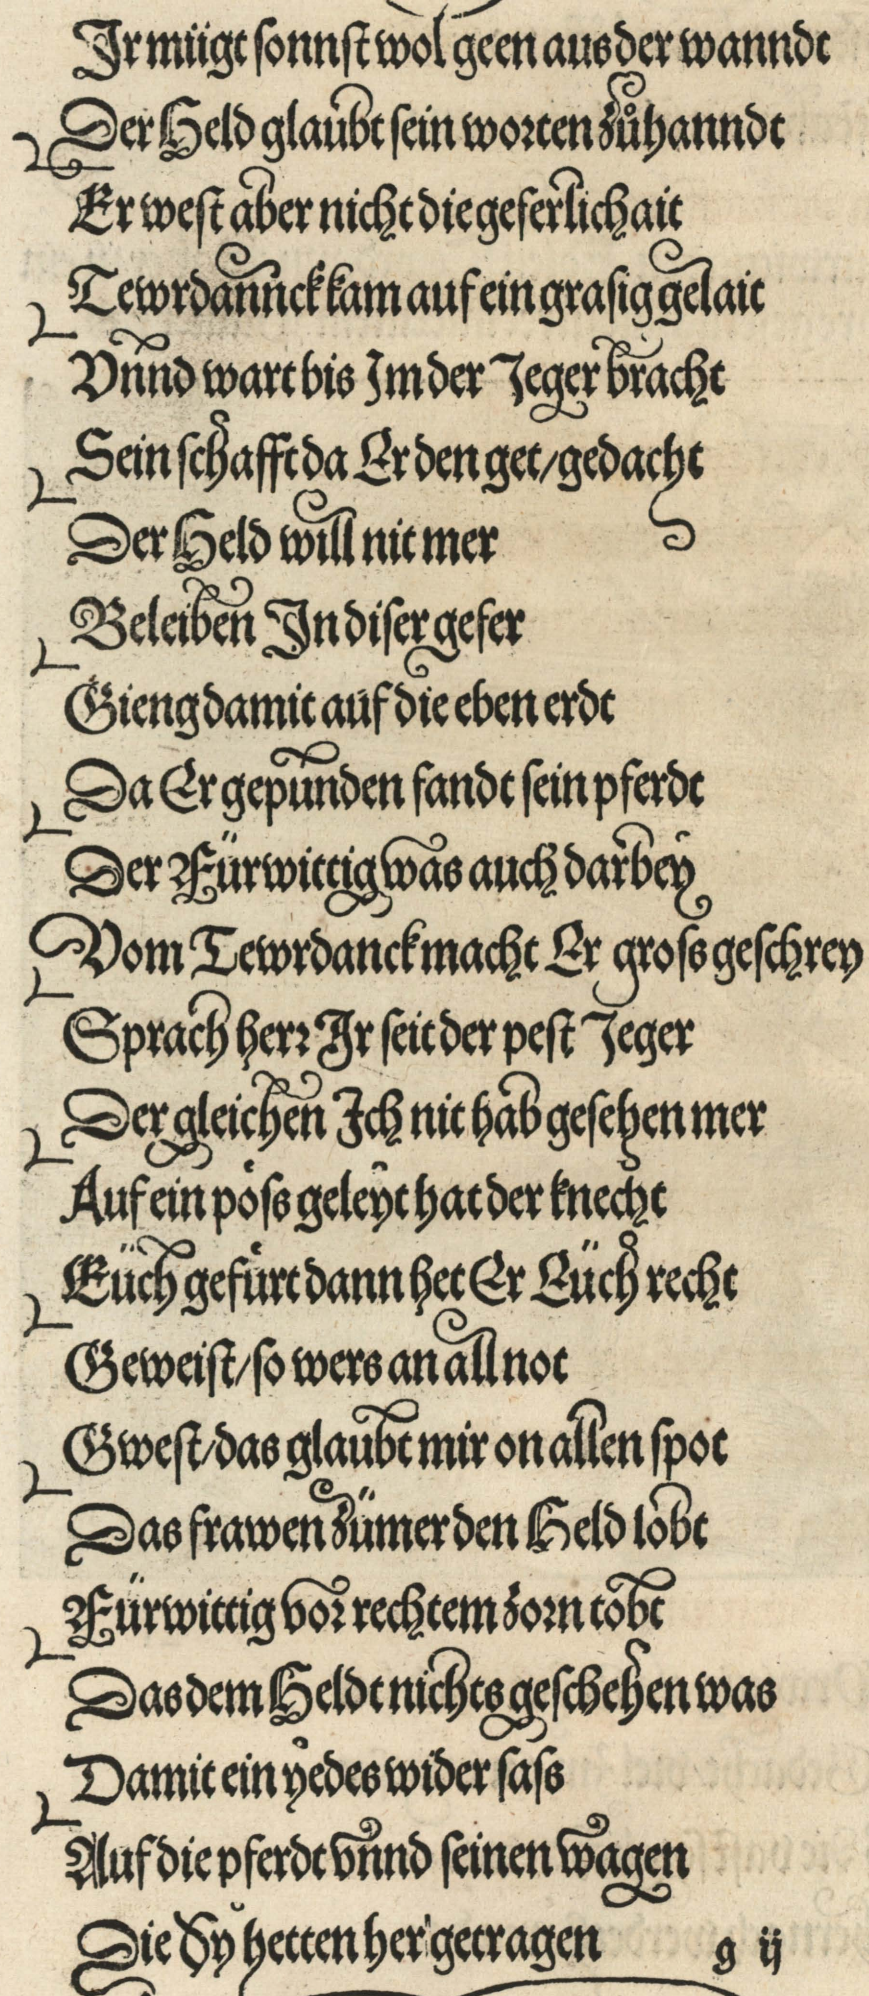 Ir mügt sonnst wol geen aus der wanndt
Der Held glaubt sein worten zůhanndt
Er west aber nicht die geferlichait
Tewrdannck kam auf ein grasig gelait
Vnnd wart bis Im der Jeger bracht
Sein schafft da Er den get/gedacht
Der Held will nit mer
Beleiben In diser gefer
Gieng damit auf die eben erdt
Da Er gepunden fandt sein pferdt
Der Fürwittig was auch darbey
Vom Tewrdanck macht Er gross geschrey
Sprach herr Ir seit der pest Jeger
Der gleichen Ich nit hab gesehen mer
Auf ein pöss geleyt hat der knecht
Eüch gefürt dann het Er Eüch recht
Geweist/so wers an all not
Gwest/das glaubt mir on allen spot
Das frawen zümer den Held lobt
Fürwittig vor rechtem zorn tobt
Das dem Heldt nichts geschehen was
Damit ein yedes wider sass
Auf die pferdt vnnd seinen wagen
Die Sy hetten her getragen g ij